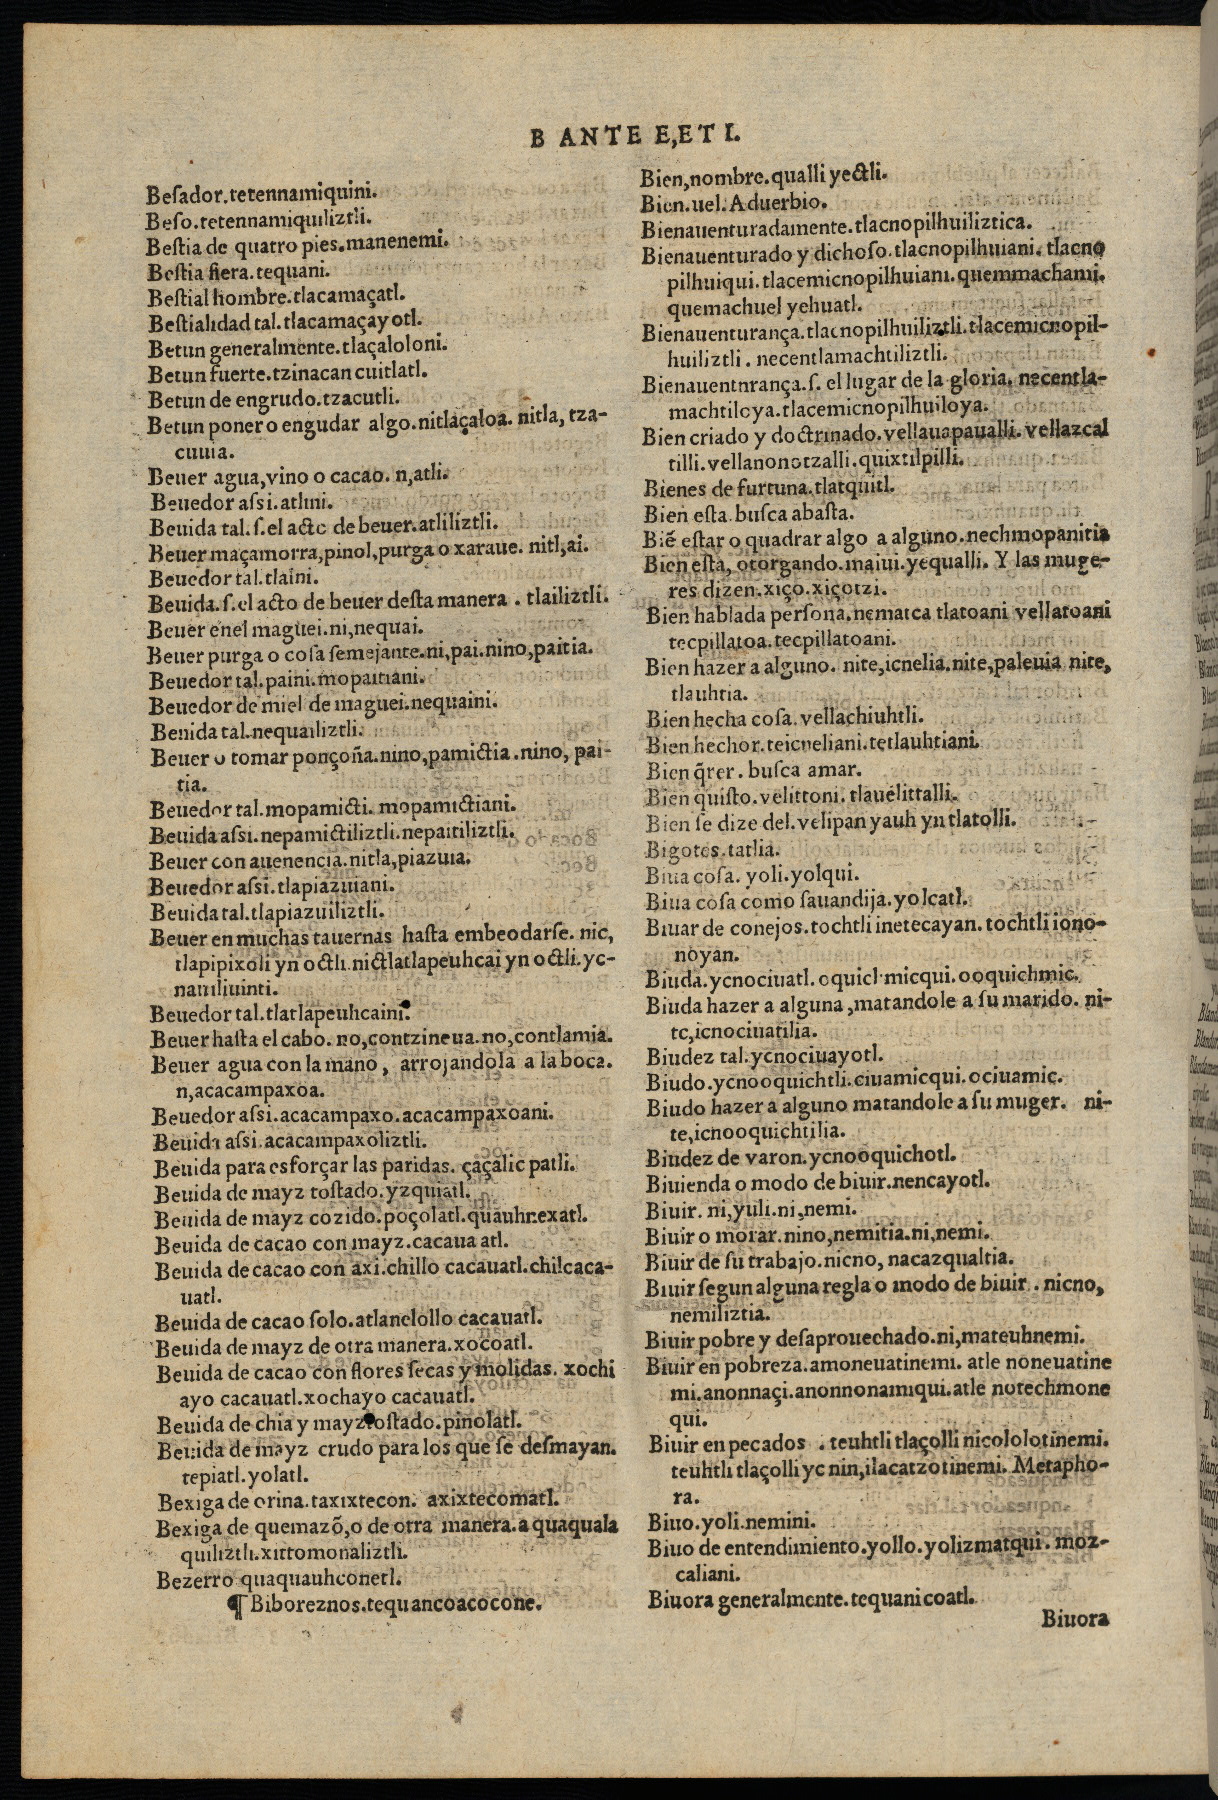 B ANTE E,ET I.
Besador.tetennamiquini.
Beso.tetennamiquiliztli.
Bestia de quatro pies.manenemi.
Bestia fiera.tequani.
Bestial hombre.tlacamaçatl.
Bestialidad tal.tlacamaçayotl.
Betun generalmente.tlaçaloloni.
Betun fuerte.tzinacancuitlatl.
Betun de engrudo.tzacutli.
Betun poner o engudar algo.nitlaçaloa. nitla, tza-
cuuia.
Beuer agua,vino o cacao. n,atli.
Beuedor assi.atlini.
Beuida tal.s.el acto de beuer.atliliztli.
Beuer maçamorra,pinol,purga o xaraue. nitl,ai.
Beuedor tal.tlaini.
Beuida.s.el acto de beuer desta manera . tlailiztli.
Beuer enel maguei.ni,nequai.
Beuer purga o cosa semejante.ni,pai.nino,paitia.
Beuedor tal.paini.mopaitiani.
Beuedor de miel de maguei.nequaini.
Beuida tal.nequailiztli.
Beuer o tomar ponçoña.nino,pamictia.nino, pai-
tia.
Beuedor tal.mopamicti. mopamictiani.
Beuida assi.nepamictiliztli.nepaitiliztli.
Beuer con auenencia.nitla,piazuia.
Beuedor assi.tlapiazuiani.
Beuida tal.tlapiazuiliztli.
Beuer en muchas tauernas hasta embeodarse. nic,
tlapipixoli yn octli.nictlatlapeuhcai yn octli.yc-
namiliuinti.
Beuedor tal.tlatlapeuhcaini.
Beuer hasta el cabo. no,contzineua.no,contlamia.
Beuer agua con la mano, arrojandola a la boca.
n,acacampaxoa.
Beuedor assi.acacampaxo.acacampaxoani.
Beuida assi.acacampaxoliztli.
Beuida para esforçar las paridas. çaçalic patli.
Beuida de mayz tostado.yzquiatl.
Beuida de mayz cozido.poçolatl.quauhnexatl.
Beuida de cacao con mayz.cacaua atl.
Beuida de cacao con axi.chillo cacauatl.chilcaca-
uatl.
Beuida de cacao solo.atlanelollo cacauatl.
Beuida de mayz de otra manera.xocoatl.
Beuida de cacao con flores secas y molidas. xochi
ayo cacauatl.xochayo cacauatl.
Beuida de chia y mayz tostado.pinolatl.
Beuida de mayz crudo para los que se desmayan.
tepiatl.yolatl.
Bexiga de orina.taxixtecon. axixtecomatl.
Bexiga de quemazõ,o de otra manera.aquaquala
quiliztli.xittomonaliztli.
Bezerro quaquauhconetl.
¶ Biboreznos.tequancoacocone.
Bien,nombre.qualli yectli.
Bien.uel. Aduerbio.
Bienauenturadamente.tlacnopilhuiliztica.
Bienauenturado y dichoso.tlacnopilhuiani. tlacno
pilhuiqui.tlacemicnopilhuiani.quemmachami.
quemachuel yehuatl.
Bienauenturança.tlacnopilhuiliztli.tlacemicnopil-
huiliztli . necentlamachtiliztli.
Bienauenturança.s. el lugar de la gloria. necentla-
machtiloya.tlacemicnopilhuiloya.
Bien criado y doctrinado.vellauapaualli.vellazcal
tilli.vellanonotzalli.quixtilpilli.
Bienes de furtuna.tlatquitl.
Bien esta.busca abasta.
Biẽ estar o quadrar algo a alguno.nechmopanitia
Bien esta, otorgando.maiui.yequalli. Y las muge-
res dizen.xiço.xiçotzi.
Bien hablada persona.nematca tlatoani vellatoani
tecpillatoa.tecpillatoani.
Bien hazer a alguno. nite,icnelia.nite,paleuia nite,
tlauhtia.
Bien hecha cosa.vellachiuhtli.
Bien hechor.teicneliani.tetlauhtiani.
Bien q̃rer.busca amar.
Bien quisto.velittoni.tlauelittalli.
Bien se dize del.velipan yauh yn tlatolli.
Bigotes.tatlia.
Biua cosa. yoli.yolqui.
Biua cosa como sauandija.yolcatl.
Biuar de conejos.tochtli inetecayan.tochtli iono-
noyan.
Biuda.ycnociuatl.oquichmicqui.ooquichmic.
Biuda hazer a alguna,matandole a su marido. ni-
te,icnociuatilia.
Biudez tal.ycnociuayotl.
Biudo.ycnooquichtli.ciuamicqui.ociuamic.
Biudo hazer a alguno matandole a su muger. ni-
te,icnooquichtilia.
Biudez de varon.ycnooquichotl.
Biuienda o modo de biuir.nencayotl.
Biuir. ni,yuli.ni,nemi.
Biuir o morar.nino,nemitia.ni,nemi.
Biuir de su trabajo.nicno, nacazqualtia.
Biuir segun alguna regla o modo de biuir . nicno,
nemiliztia.
Biuir pobre y desaprouechado.ni,mateuhnemi.
Biuir en pobreza.amoneuatinemi. atle noneuatine
mi.anonnaçi.anonnonamiqui.atle notechmone
qui.
Biuir en pecados . teuhtli tlaçolli nicololotinemi.
teuhtli tlaçolli yc nin,ilacatzotinemi. Metapho-
ra.
Biuo.yoli.nemini.
Biuo de entendimiento.yollo.yolizmatqui. moz-
caliani.
Biuora generalmente.tequanicoatl.
Biuora